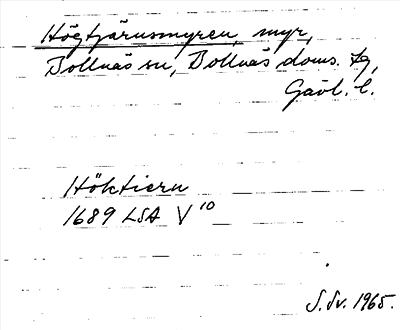 Högtjärnsmyren, myr,
Bollnäs sn, Bollnäs doms. tg,
Gävl. l.
Höktiern
1689 LSA V 10
S. Sv. 1965.